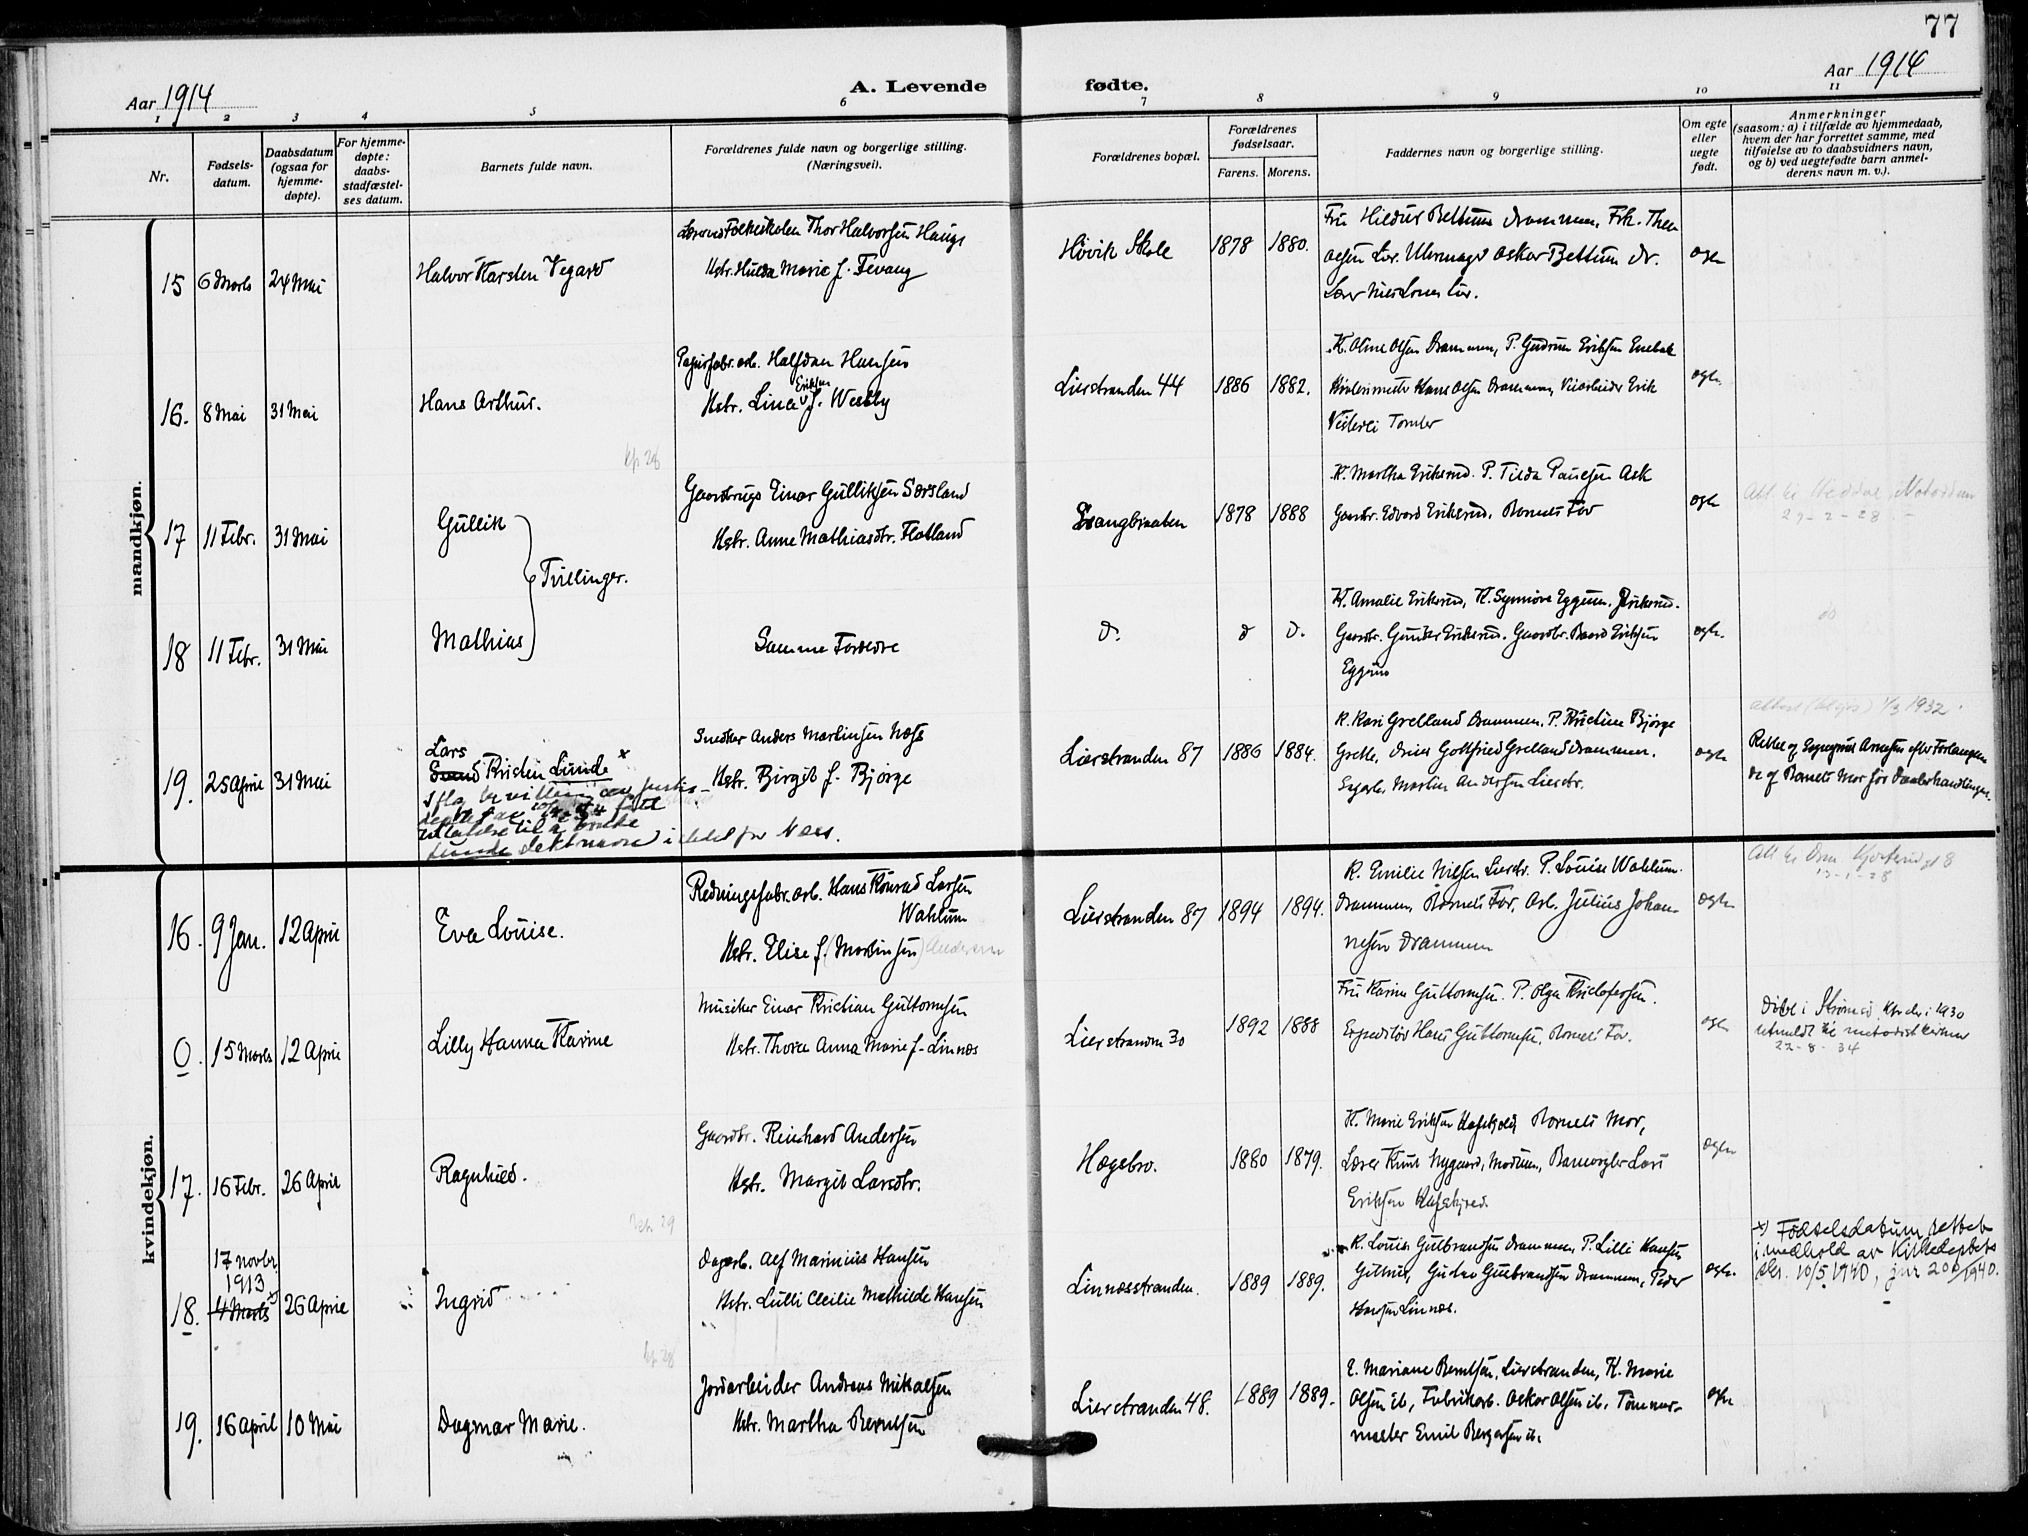 77
Aar 1914
A. Levende fødte.
Aar 1914
1 2 3 4 5 6 7 8 9 10 11
Nr.
Fødsels-
datum.
Daabsdatum
(ogsaa for
hjemme-
døpte).
For hjemme-
døpte:
daabs-
stadfæstel-
ses datum.
Barnets fulde navn.
Forældrenes fulde navn og borgerlige stilling.
(Næringsvei).
Forældrenes bopæl.
Forældrenes
fødselsaar.
Farens. Morens.
Faddernes navn og borgerlige stilling.
Om egte
eller
uegte
født.
Anmerkninger
(saasom: a) i tilfælde av hjemmedaab,
hvem der har forrettet samme, med
tilføielse av to daabsvidners navn,
og b) ved uegtefødte barn anmel-
derens navn m. v.).
mandkjøn.
15 6 Marts 24 Mai
Halvor Karsten Vegard
Thor Halvorsen Hauge
Hstr. Hilda Marie f. Fevang
Høvik Skole 1878 1880.
Fru Hildur Bettum Drammen, Frk. Thea
Olsen Lier. Oskar Bettum Dr.
egte
16. 8 Mai 31 Mai
Hans Arthur.
Papirfabr. arb. Halfdan Hansen
Eriksen
Hstr. Lina f. Westby
Lierstranden 44 1886 1882.
K. Oline Olsen Drammen, P. Gudrun Eriksen Enebak
Hans Olsen Drammen, Erik
Tomter
egte.
kp 28
17 11 Febr. 31 Mai
Gullik
Tvillinger.
Gaardbrugs Einar Gulliksen Sørsland
Hstr. Anne Mathiasdtr. Flatland
1878 1888
K. Martha Eriksrud. P. Tilda Paulsen Ask
Gaardbr. Edvard Eriksrud. Barnets Far
egte
29-2-28
18 11 Febr. 31 Mai
Mathias
Samme Forældre
d. d d.
K. Amalie Eriksrud, K. Synnøve Eggum. Eriksrud.
Gaardbr. Gunder Eriksrud. Gaardbr. Baard Eriksen
Eggum
egte.
do
19. 25 April 31 Mai
Lars
Kristen Lunde x
Lunde slektsnavn i stedet for Næss.
Snedker Anders Martinsen Næss
Hstr. Birgit f. Bjørge
Lierstranden 87 1886 1884.
K. Kari Grelland Drammen, P. Kristine Bjørge
Gottfried Grelland Drammen.
Martin Andersen Lierstr.
egte
1/3 1932
Rettet af Sogneprest Arnesen efter Forlangen-
de af Barnets Mor før Daabshandlingen.
kvindekjøn.
16. 9 Jan. 12 April
Eva Louise.
Redningsfabr. arb. Hans Konrad Larsen
Wahlum
Hstr. Elise f. (Martinsen) Andersen
Lierstranden 87 1894 1894.
K. Emilie Nilsen Lierstr. P. Louise Wahlum.
Drammen, Barnets Far, Arb. Julius Johan-
nesen Drammen
egte
13-1-28
0. 15 Marts 12 April
Lilly Hanna Karine
Musiker Einar Kristian Guttormsen
Hstr. Thora Anna Marie f. Linnæs
Lierstranden 30 1892 1888
Fru Karine Guttormsen. P. Olga Kristofersen.
Expeditør Hans Guttormsen, Barnets Far.
egte
Døbt i Strømsø 1930
utmeldt til metodistkirken
22-8-34
17. 16 Febr. 26 April
Ragnhild.
Gaardbr. Reinhard Andersen
Hstr. Margit Larsdtr.
Hægsbro. 1880 1879.
K. Marie Eriksen Hafskjold, Barnets Mor,
Lærer Knut Nygaard, Modum, Lars
Eriksen
egte
17 novbr
1913 x)
18. 4 Marts 26 April
Ingrid
Dagarb. Alf Marinius Hansen
Hstr. Lulli Cecilie Mathilde Hansen
Linnæsstranden. 1889 1889.
K. Louise Gulbrandsen Drammen, P. Lilli Hansen
Gilhus, Gustav Gulbrandsen Drammen, Peder
Hansen Linnæs.
egte.
x) Fødselsdatum rettet
i medhold av Kirkedeptets
skr. 10/5 1940, jnr 200/1940.
kp 28
19. 16 April 10 Mai
Dagmar Marie.
Jordarbeider Andreas Mikalsen
Hstr. Martha Berntsen
Lierstranden 48. 1889 1889.
E. Mariane Berntsen, Lierstranden, K. Marie
Olsen ib, Fabrikarb. Oskar Olsen ib. Tømmer-
mester Emil Bergersen ib.
egte